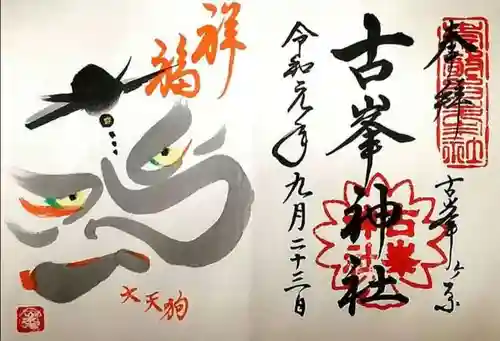 奉拝
古峯ヶ原
古峯神社
古峯神社
令和元年九月二十三日
祥福
大天狗